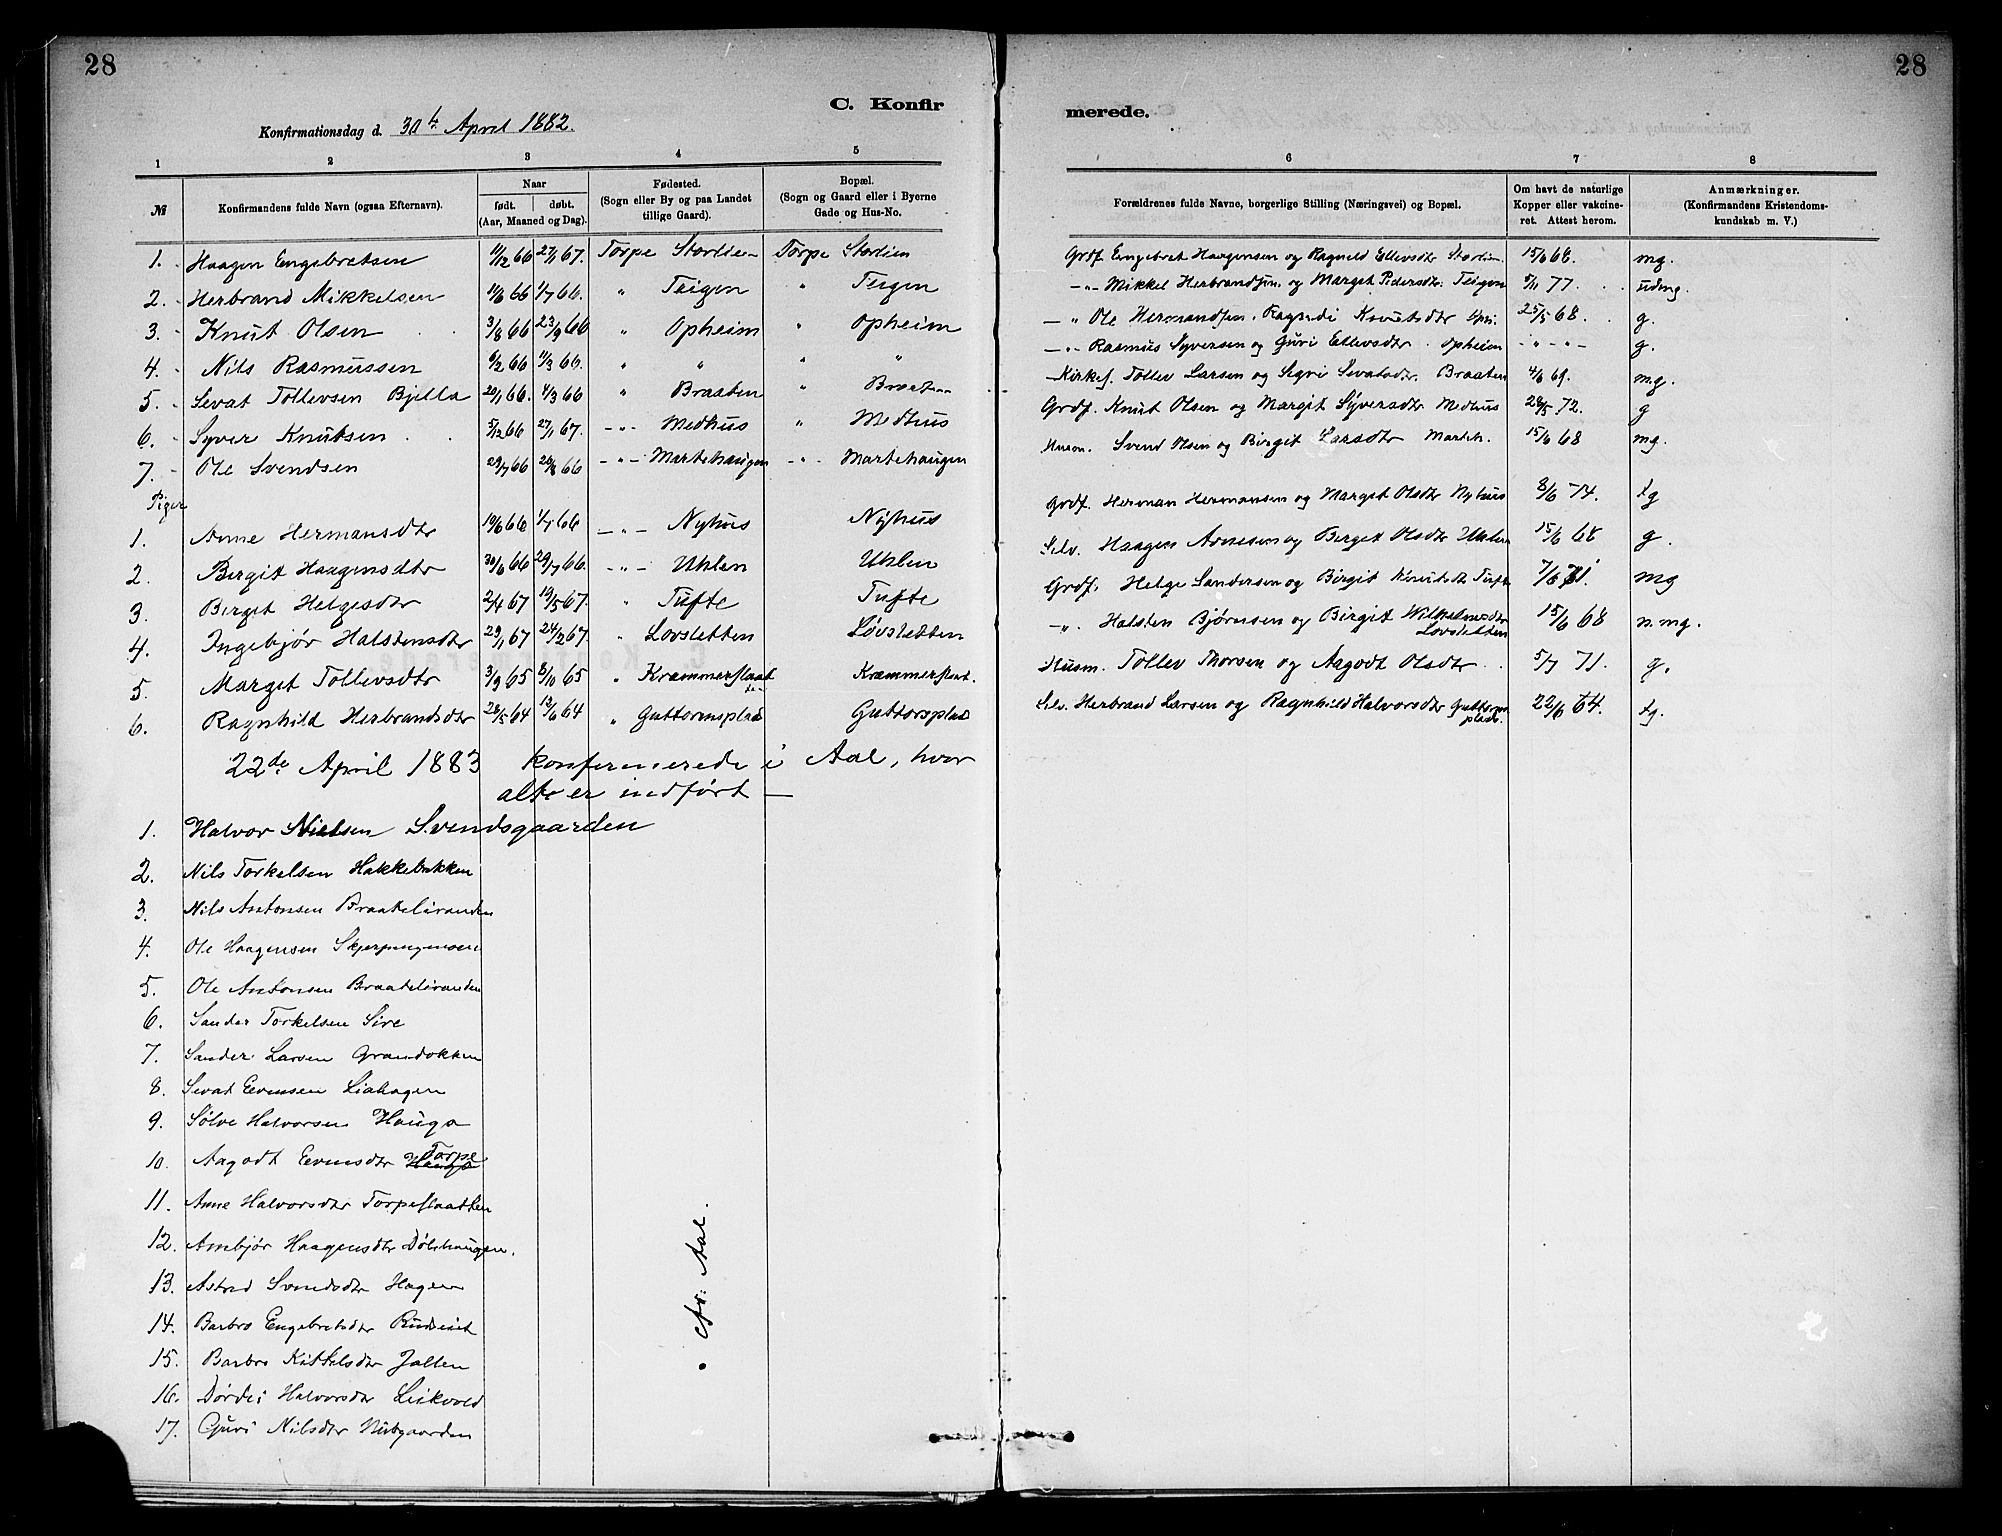 28
28
C. Konfir
merede.
Konfirmationsdag d. 30te April 1882.
1 2 3 4 5 6 7 8
№ Konfirmandens fulde Navn (ogsaa Efternavn). Naar født. døbt. (Aar, Maaned og Dag). Fødested. (Sogn eller By og paa Landet tillige Gaard). Bopæl. (Sogn og Gaard eller i Byerne Gade og Hus-No. Forældrenes fulde Navne, borgerlige Stilling (Næringsvei) og Bopæl. Om havt de naturlige Kopper eller vakcineret. Attest herom. Anmærkninger. (Konfirmandens Kristendomskundskab m. V.)
1. Haagen Engebretsen 11/12 66 27/1 67. Torpe Storlien Torpe Storlien Grdf. Engebret Haagensen og Ragnild Ellevsdtr Storlien 15/6 68. mg.
2. Herbrand Mikkelsen 11/6 66 1/7 66. " Teigen " Teigen -"- Mikkel Herbrandsen og Marget Pedersdtr. Teigen 5/11 77. udmg.
3. Knut Olsen 3/8 66 23/9 66 " Opheim " Opheim -" Ole Hermandsen. Ragndi Knutsdtr Ophi. 25/5 68. g.
4. Nils Rasmussen 6/2 66 11/3 66. " " " " -"- Rasmus Syversen og Guri Ellevsdtr. Opheim -"-"- g.
5. Sevat Tollevsen Bjella 20/1 66. 4/3 66 " Braaten " Braaten Kirkes. Tollev Larsen og Sigri Sevatsdtr. Braaten 4/6 69. mg.
6. Syver Knutsen 5/12 66 27/1 67. -"- Medhus " Medhus Grdf. Knut Olsen og Margit Syversdtr Medhus 28/5 72. g
7. Ole Svendsen 29/7 66 26/8 66 -"- Martehaugen -"- Martehaugen Husm. Svend Olsen og Birgit Larsdtr Marteh. 15/6 68 mg.
Piger
1. Anne Hermansdtr 10/6 66 1/7 66 -"- Nyhus Nyhus Grdf. Herman Hermansen og Marget Olsdtr Nyhus 8/6 74. tg
2. Birgit Haagensdtr 30/6 66 29/7 66. -"- Uhlen Uhlen Selv. Haagen Arnesen og Birget Olsdtr Uhlen 15/6 68 g.
3. Birget Helgesdtr 2/4 67 19/5 67. " Tufte Tufte Grdf. Helge Sandersen og Birgit Knutsdtr Tufte 7/6 71. mg
4. Ingebjør Halstensdtr 29/1 67 24/2 67. " Lovsletten Løvsletten -". Halsten Bjørnsen og Birgit Wilhelmsdtr Lovsletten 15/6 68 n.mg.
5. Marget Tollevsdtr 3/9 65 8/10 65 " Kræmmerslaatten Kræmmerslaat. Husm. Tollev Thorsen og Aagodt Olsdtr 5/7 71. g.
6. Ragnhild Herbrandsdtr 26/5 64 12/6 64 " Guttormsplads Guttorsplads Selv. Herbrand Larsen og Ragnhild Halvorsdtr Guttormplads. 22/6 64. tg.
22de April 1883 konfirmerede i Aal, hvor
alle er indført —
1. Halvor Nielsen Svendsgaarden
2. Nils Torkelsen Hakkebakken
3. Nils Antonsen Braateliranden
4. Ole Haagensen
5. Ole Antonsen Braateliranden
6. Sander Torkelsen Sire
7. Sander Larsen Grandokken
8. Sevat Evensen Liahagen
9. Sølve Halvorsen Hauga
10. Aagodt Evensdtr Torpe
11. Anne Halvorsdtr Torpeslaatten
12. Ambjør Haagensdtr Dølehaugen.
13. Astrid Svendsdtr Hagen
14. Barbro Engebretsdtr
15. Barbro Kittelsdtr Jallen
16. Dørdei Halvorsdtr Leikvold
17. Guri Nilsdtr Nubgaarden
cfr. Aal.